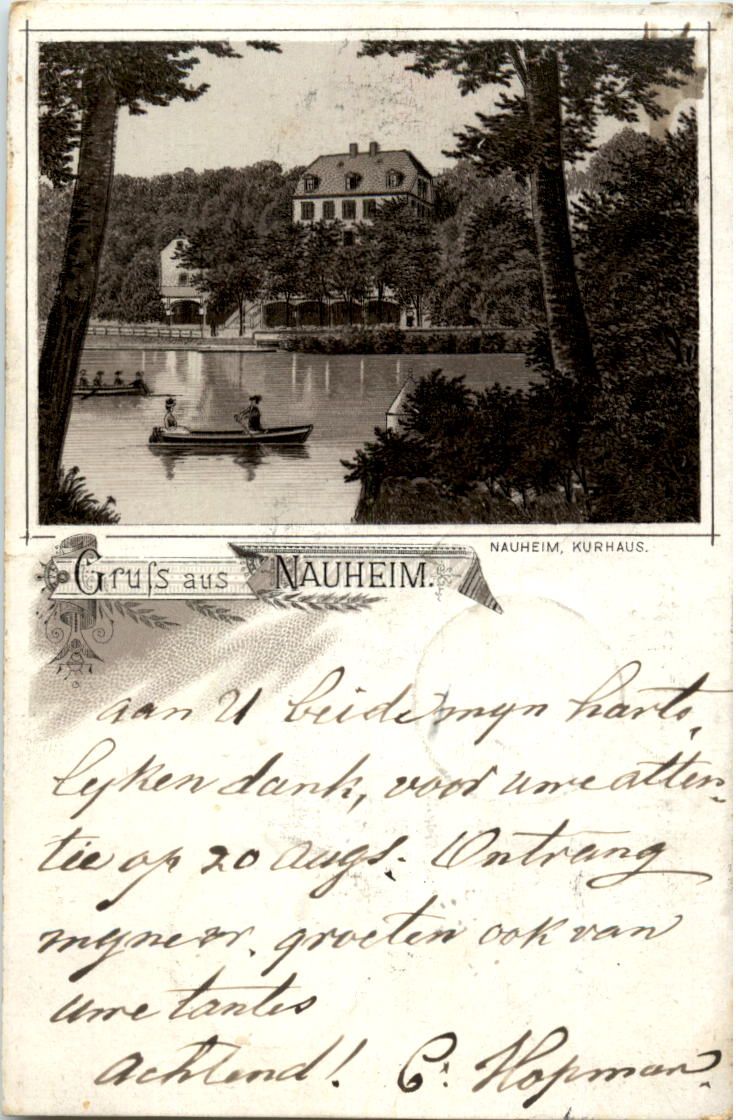 NAUHEIM, KURHAUS.
Gruſs aus NAUHEIM.
aan U beide myn harts,
lyken dank, voor uwe atten-
tie op 20 Augs. Ontvang
myne groeten ook van
uwe tantes
Achtend! C. Hopman.